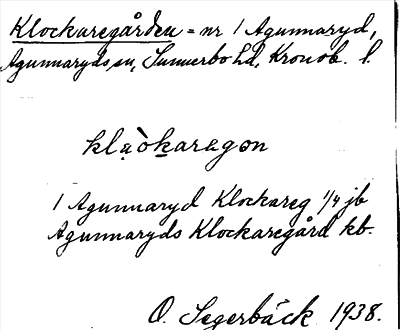 Klockaregården = nr 1 Agunnaryd,
Agunnaryds sn, Sunnerbo hd, Kronob. l.
klạòkaragon
1 Agunnaryd Klockareg 1/4 jb
Agunnaryds Klockaregård kb.
O. Segerbäck 1938.